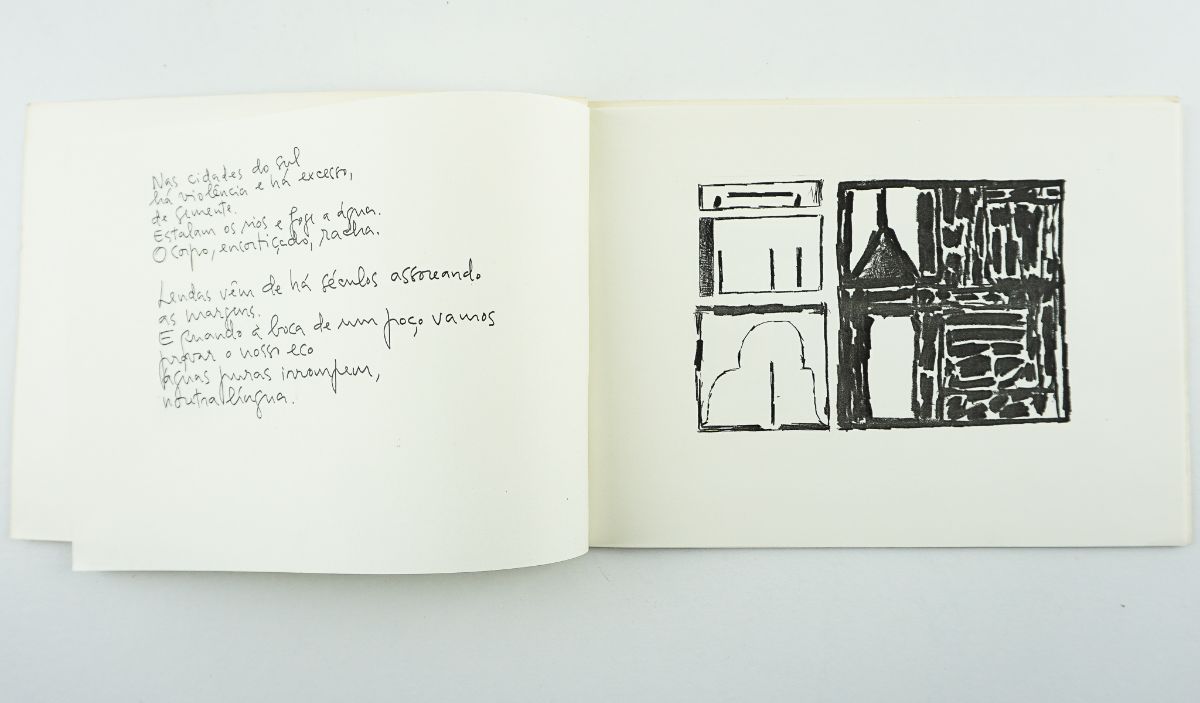 Nas cidades do sul
há violência e há excesso,
de semente.
Estalam os rios e foge a água.
O corpo, encortiçado, racha.
Lendas vêm de há séculos assoreando
as margens.
E quando à boca de um poço vamos
provar o nosso eco
águas puras irrompem,
noutra língua.